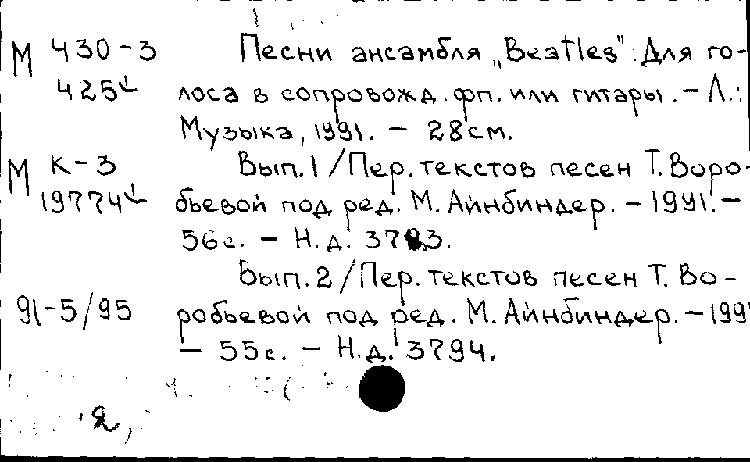 М 430-3 Песни ансамбля „Beatles": Для го-
425 лоса в сопровожд. фп. или гитары. - Л.:
Музыка, 1991. - 28см.
М К-3 Вып.1/Пер. текстов песен Т. Воро-
19774 бьевой под ред. М. Айнбиндер. - 1991. -
56с. - Н.д.
Вып.2/Пер. текстов песен Т. Во-
91-5/95 робьевой под ред. М. Айнбиндер. - 199
- 55с. - Н.д. 3794.